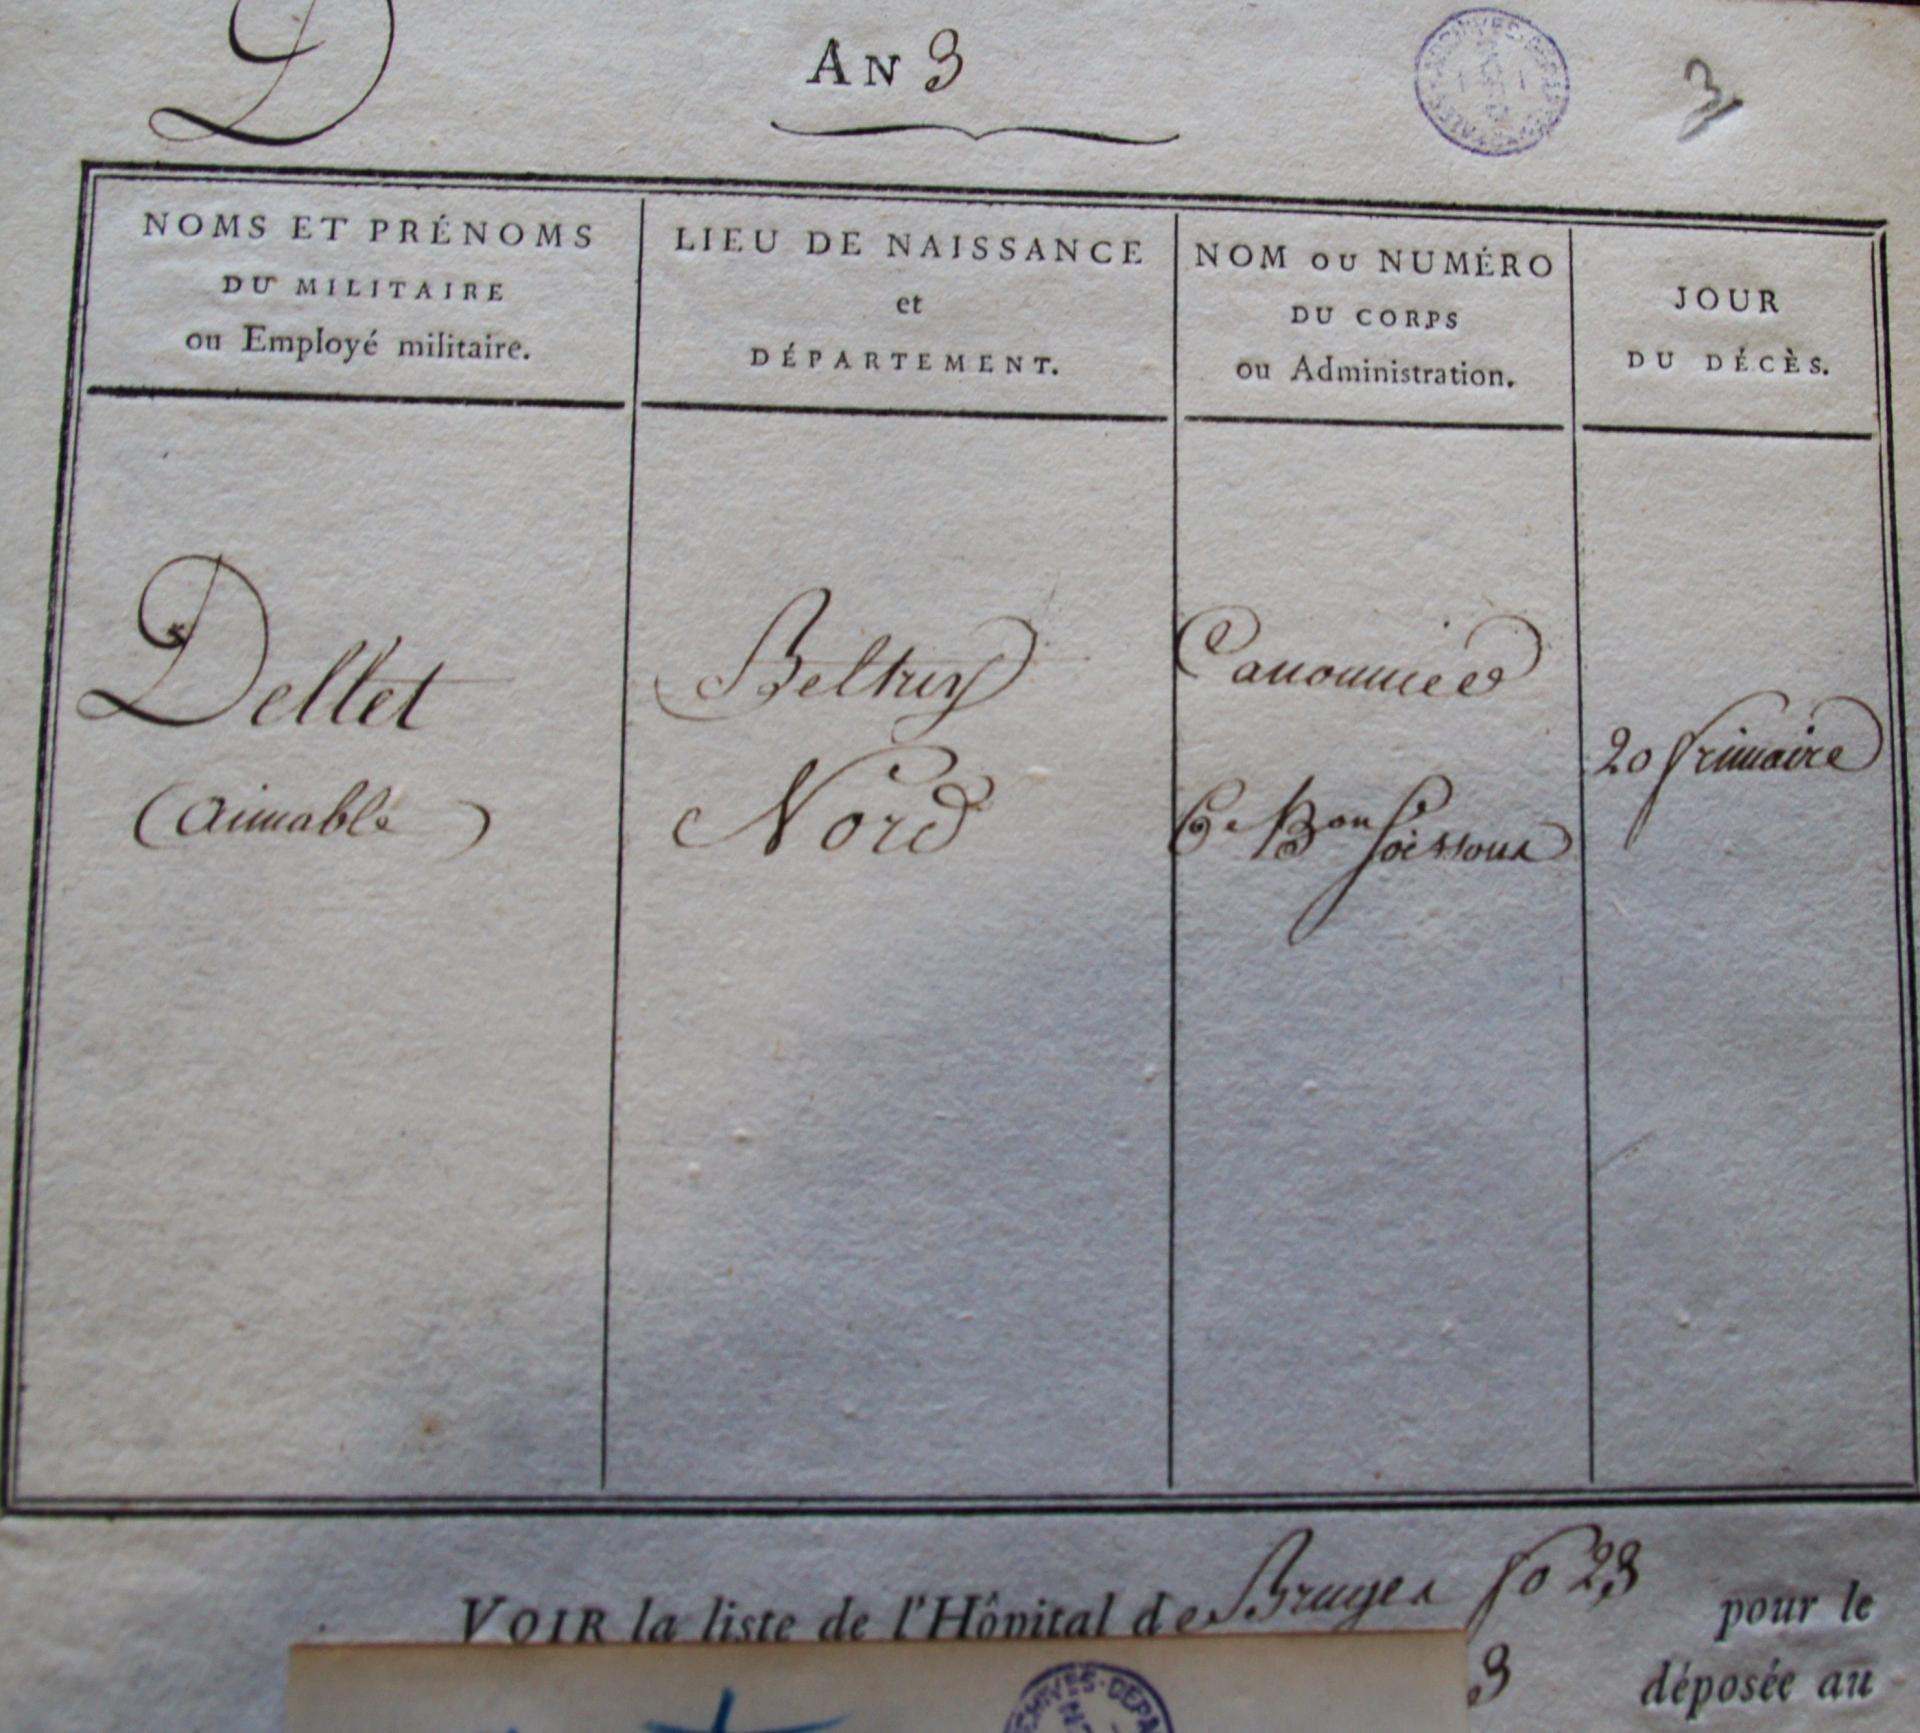 D
AN 3
3
NOMS ET PRÉNOMS
DU MILITAIRE
ou Employé militaire.
LIEU DE NAISSANCE
et
DÉPARTEMENT.
NOM OU NUMÉRO
DU CORPS
ou Administration.
JOUR
DU DÉCÈS.
Dellet
(Aimable)
Beltruy
Nord
Canonnier
6e Bon Soissons
20 frimaire
VOIR la liste de l'Hôpital de Bruges fo 23 pour le
3 déposée au